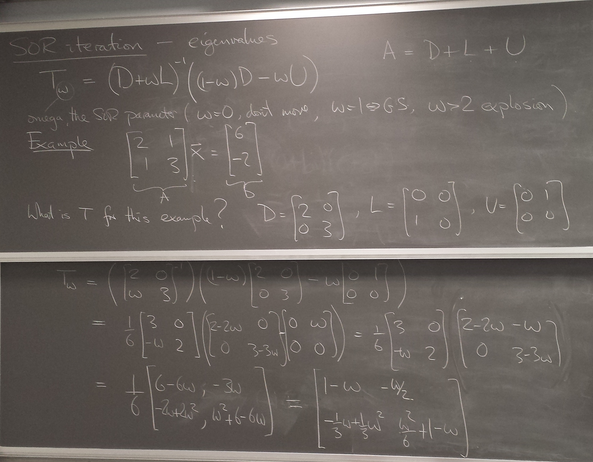 SOR iteration — eigenvalues
A = D+L+U
T_ω = (D+ωL)^{-1}((1-ω)D - ωU)
omega, the SOR parameter (ω=0, don't move, ω=1⇔GS, ω>2 explosion)
Example [2 1; 1 3] x̄ = [6; -2]
A b
What is T for this example? D = [2 0; 0 3], L = [0 0; 1 0], U = [0 1; 0 0]
T_ω = ([2 0; ω 3]^{-1})((1-ω)[2 0; 0 3] - ω[0 1; 0 0])
= 1/6 [3 0; -ω 2]([2-2ω 0; 0 3-3ω] - [0 ω; 0 0]) = 1/6 [3 0; -ω 2][2-2ω -ω; 0 3-3ω]
= 1/6 [6-6ω, -3ω; -2ω+2ω², ω²+6-6ω] = [1-ω -ω/2; -1/3ω+1/3ω² ω²/6+1-ω]